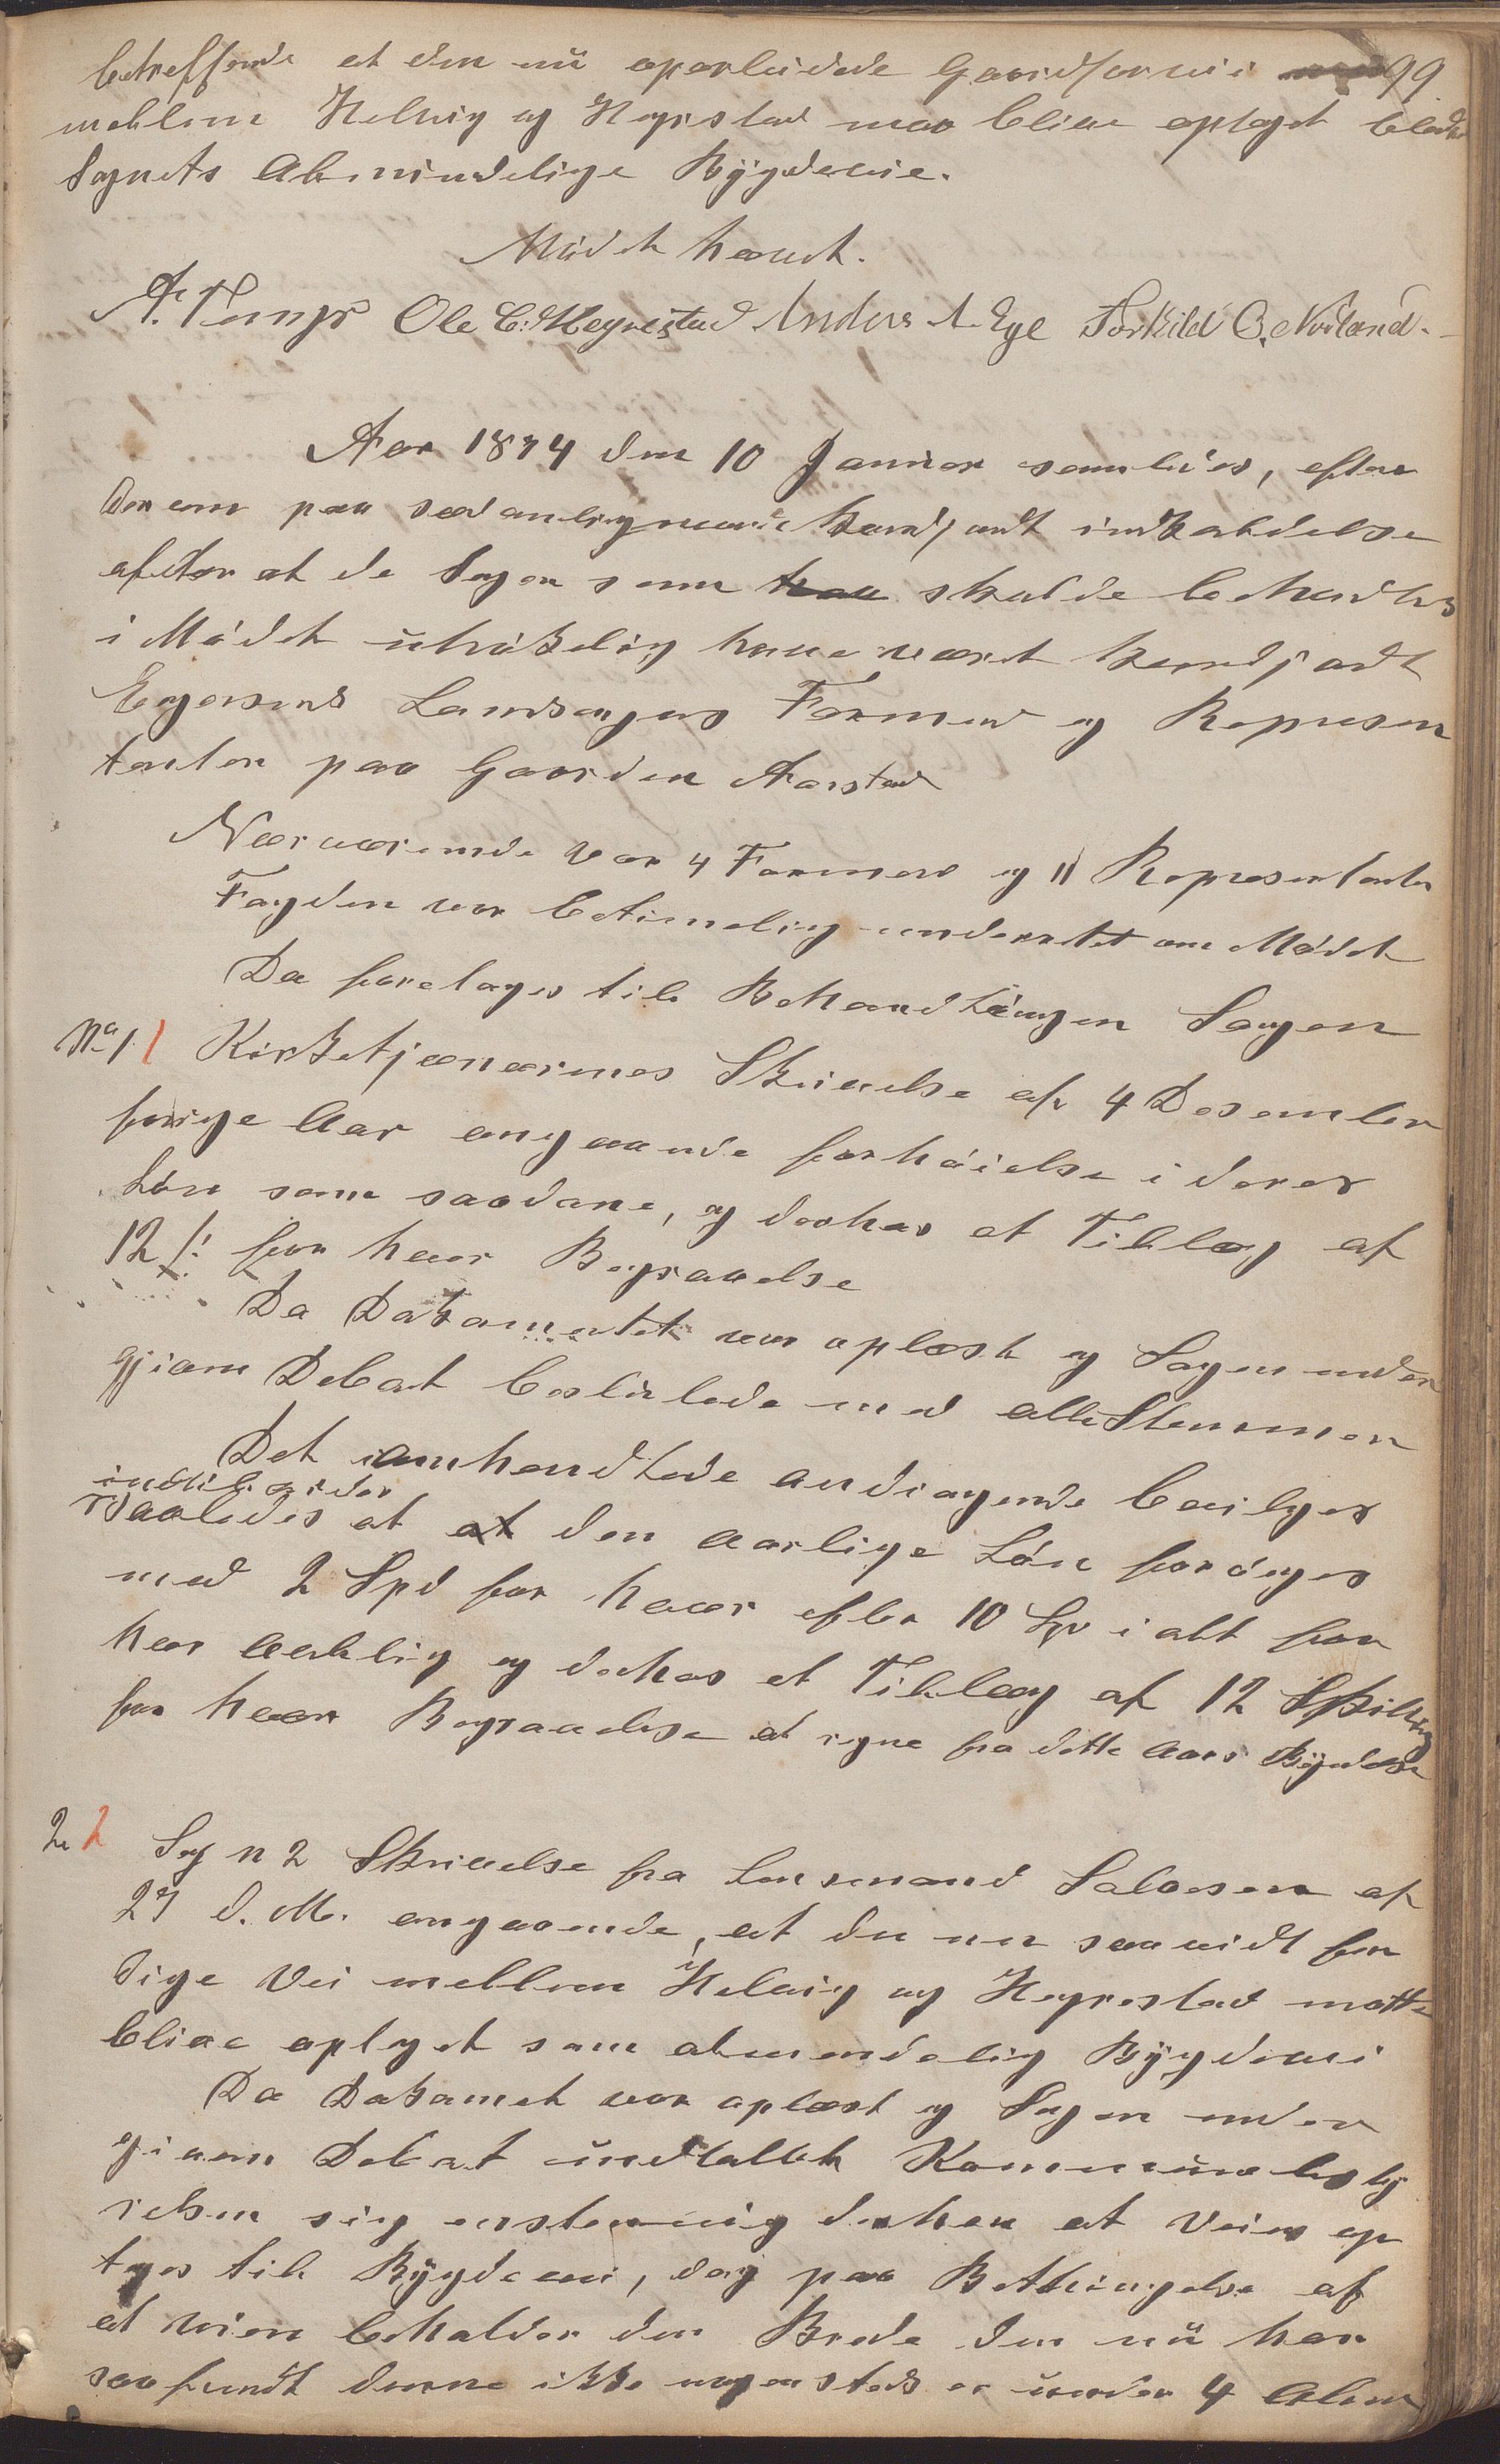 betreffende at den nu oparbeidede Gaardsvei 99
mellem Helvig og Hegrestad maa blive optaget blandt
Sognets Almindelige Bÿgdeveie.
Mødet hævet.
Ole C. Hegrestad Anders A. Ege Torkild O. Nodland.
Aar 1874 den 10 Januar samledes, efter
der om paa sedvanligmaade kundgjordt indkaldelse
efter at de Sager som skulde behandles
i Mødet uttrÿkelig have veret kundgjordt
Egersunds Landsogns Formend og Represen
tanter paa Gaarden Aarstad
Nærværende var 4 Formend og 11 Representanter
Fogden var betimelig underrettet om Mødet
Da foretoges til Behandlingen Sagen
No 1 1 Kirketjenernes Skrivelse af 4 Desember
forige Aar angaaende forhøielse i deres
Løn som saadane, og derhos et Tillæg af
12 s: for hver Begravelse
Da Dokumentet var oplæst og Sagen under
gjiven Debat besluttede med alle Stemmer
Det omhandlede andragende bevilges
indtil videre
saaledes at at den aarlige Løn forøges
med 2 Spd for hver eller 10 Spd i alt for
hver aarlig og derhos et Tillæg af 12 Skilling
for hver Begravelse at regne fra dette Aars Bÿndelse
2 2 Sag n 2 Skrivelse fra Lensmand Salvesen af
27 d. M. angaaende, at den nu saavidt fær
dige Vei mellem Helvig og Hegrestad motte
blive optaget som almendelig Bÿgdevei
Da Dokumet var oplæst og Sagen under
given Debat udtalte Kommunebestÿ
relsen sig enstemmig derhen at Veien op
tages til Bÿgdevei, dog paa Bethingelse af
at veien beholder den Brede den nu har
saafremdt denne ikke nogensteds er under 4 Alen